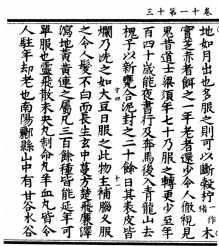 三十第一十卷
地如月出也多服之則可以斷穀柠一作楮木
實芝赤者餌之一年老者還少令人徹視見
鬼昔道士梁頊年七十乃服之轉更少至年
百四十歲能夜書行及奔馬後入青龍山去
槐子以新甕合泥封之二十餘日其表皮皆
爛乃洗之如大豆日服之此物主補腦久服
之令人髮不白而長生玄中蔓方楚飛廉澤
瀉地黃黃連之屬凡三百餘種皆能延年可
單服也靈飛散未央丸制命丸羊血丸皆令
人駐年却老也南陽酈縣山中有甘谷水谷